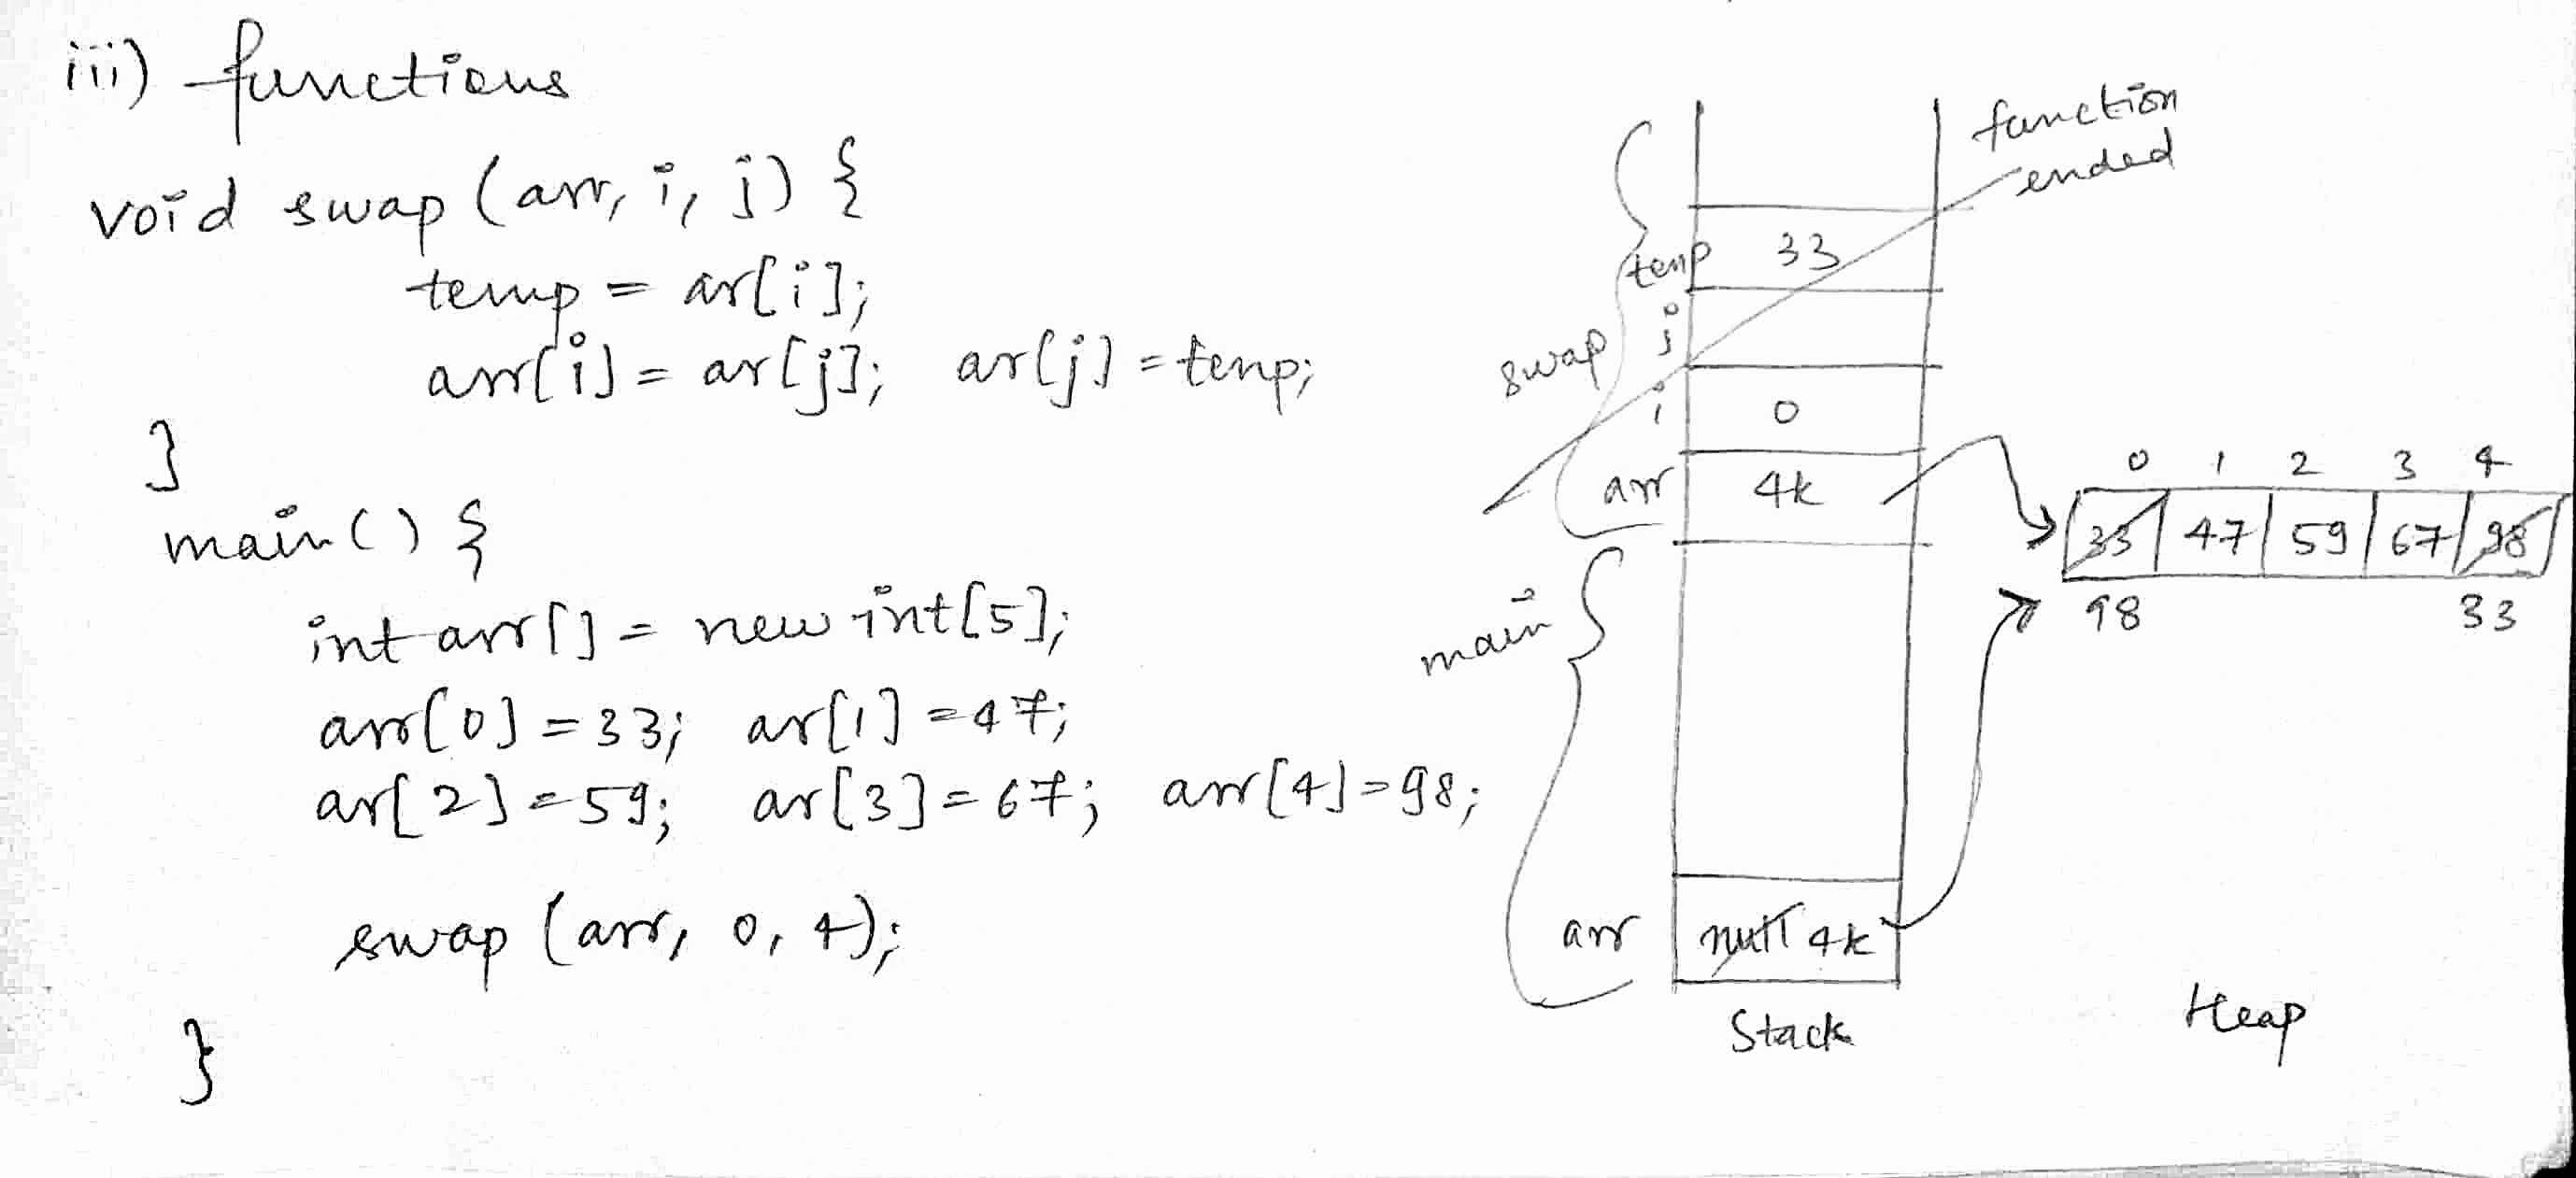 iii) functions
void swap (arr, i, j) {
temp = ar[i];
arr[i] = ar[j]; ar[j] = temp;
}
main() {
int arr[] = new int[5];
arr[0] = 33; ar[1] = 47;
ar[2] = 59; ar[3] = 67; arr[4] = 98;
swap (arr, 0, 4);
}
function
ended
temp 33
j
swap
i 0
arr 4k
main
arr null 4k
Stack
0 1 2 3 4
33 47 59 67 98
98 33
Heap